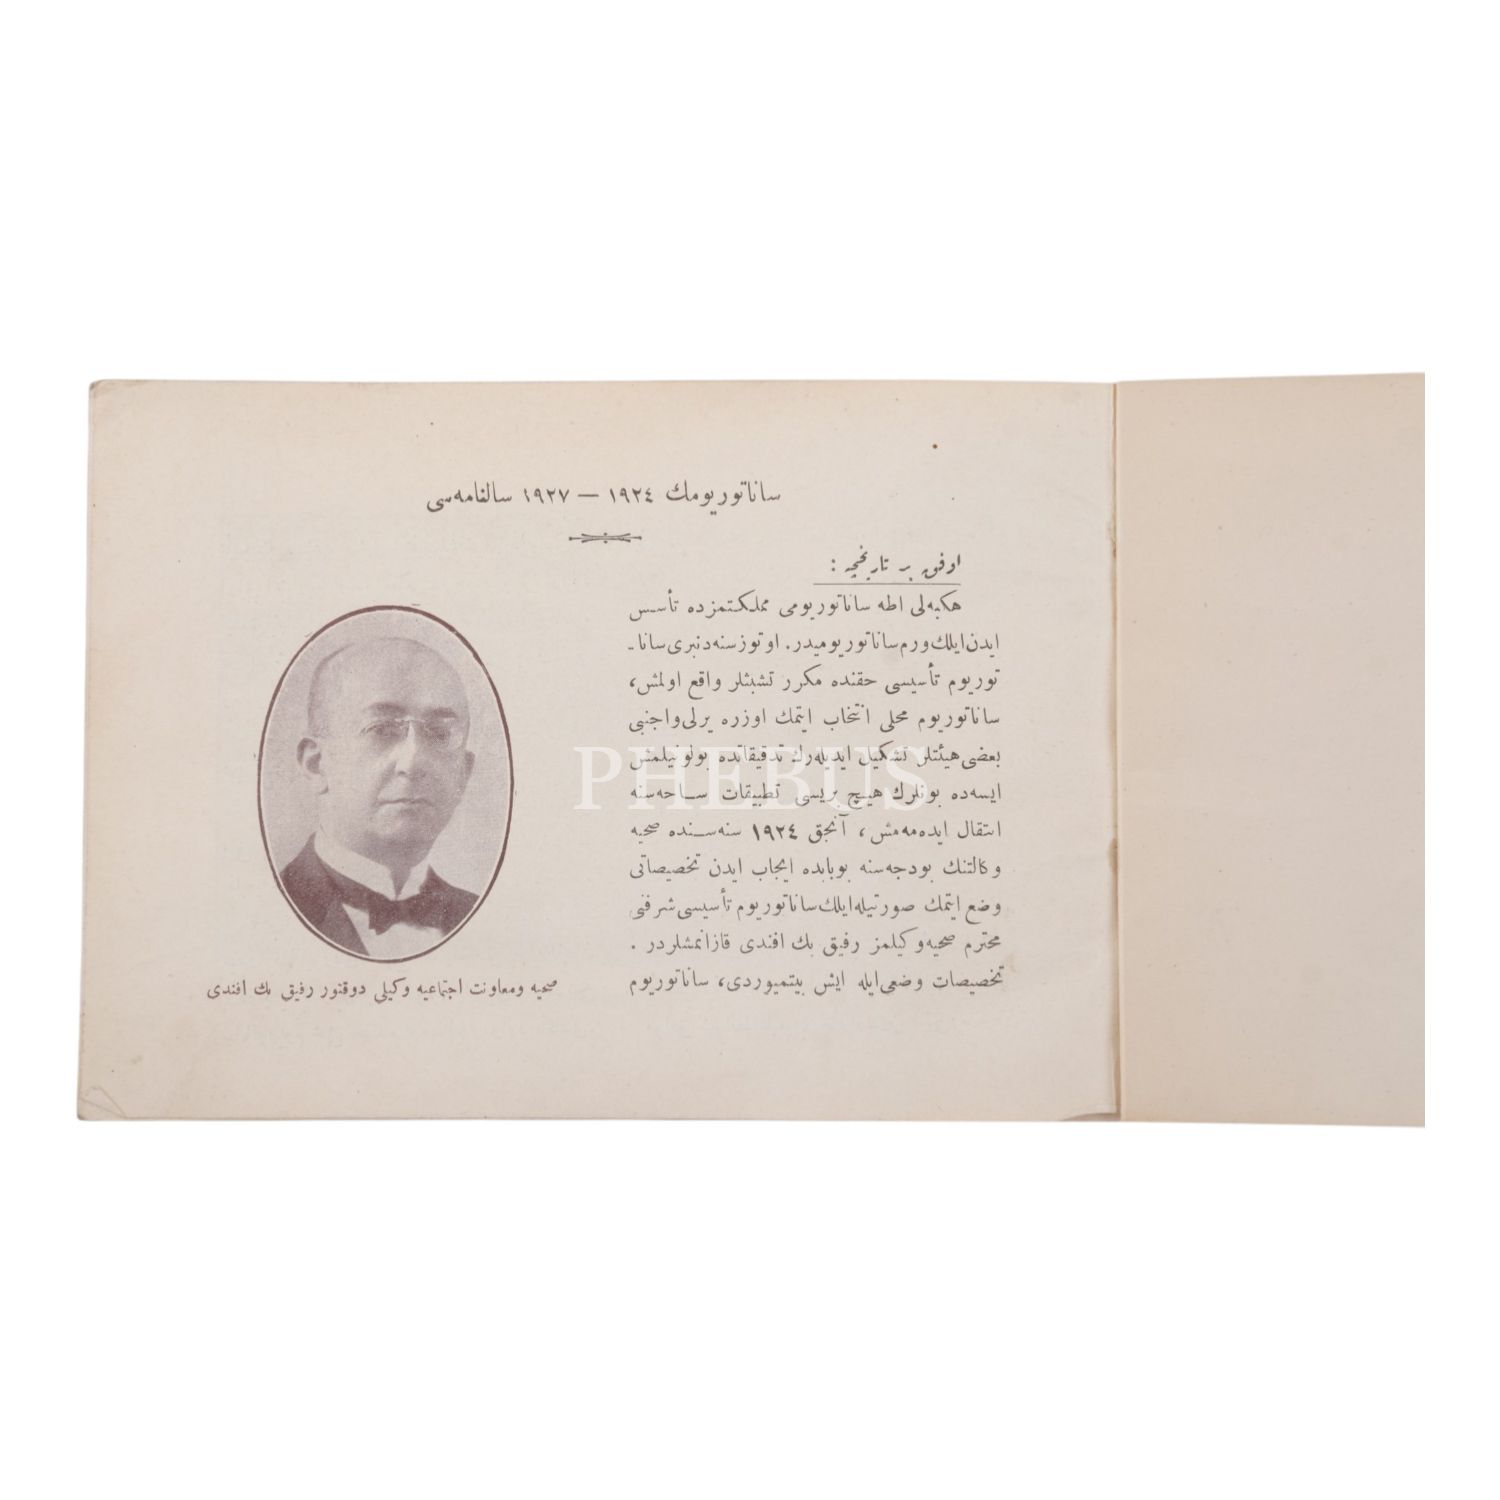 ساناتوريومك ١٩٢٤ — ١٩٢٧ سالنامه‌سى
اوفق بر تاريخچه :
هكبه‌لى اطه ساناتوريومى مملكتمزده تأسس
ايدن ايلك ورم ساناتوريوميدر. اوتوز سنه‌دنبرى سانا-
توريوم تأسيسى حقنده مكرر تشبثلر واقع اولمش،
ساناتوريوم محلى انتخاب ايتمك اوزره يرلى واجنبى
بعضى هيئتلر تشكيل ايديله‌رك تدقيقاتده بولونيلمش
ايسه‌ده بونلرك هيچ بريسى تطبيقات ساحه‌سنه
انتقال ايده‌مه‌مش، آنجق ١٩٢٤ سنه‌سنده صحيه
وكالتنك بودجه‌سنه بوبابده ايجاب ايدن تخصيصاتى
وضع ايتمك صورتيله ايلك ساناتوريوم تأسيسى شرفنى
محترم صحيه وكيلمز رفيق بك افندى قازانمشلردر .
تخصيصات وضعى ايله ايش بيتميوردى، ساناتوريوم
صحيه ومعاونت اجتماعيه وكيلى دوقتور رفيق بك افندى
PHEBUS